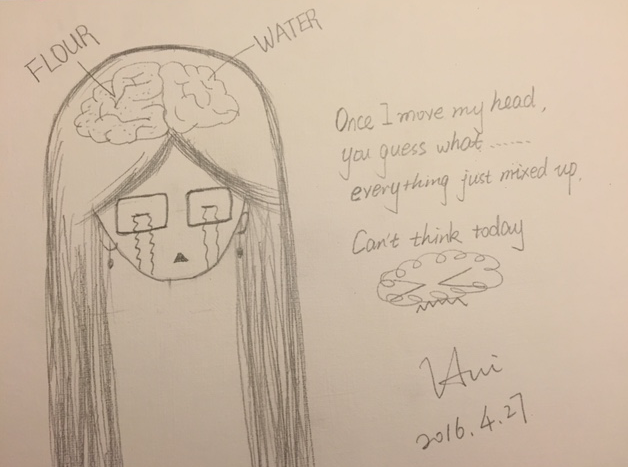 FLOUR
WATER
Once I move my head,
you guess what......
everything just mixed up.
Can't think today
2016.4.27